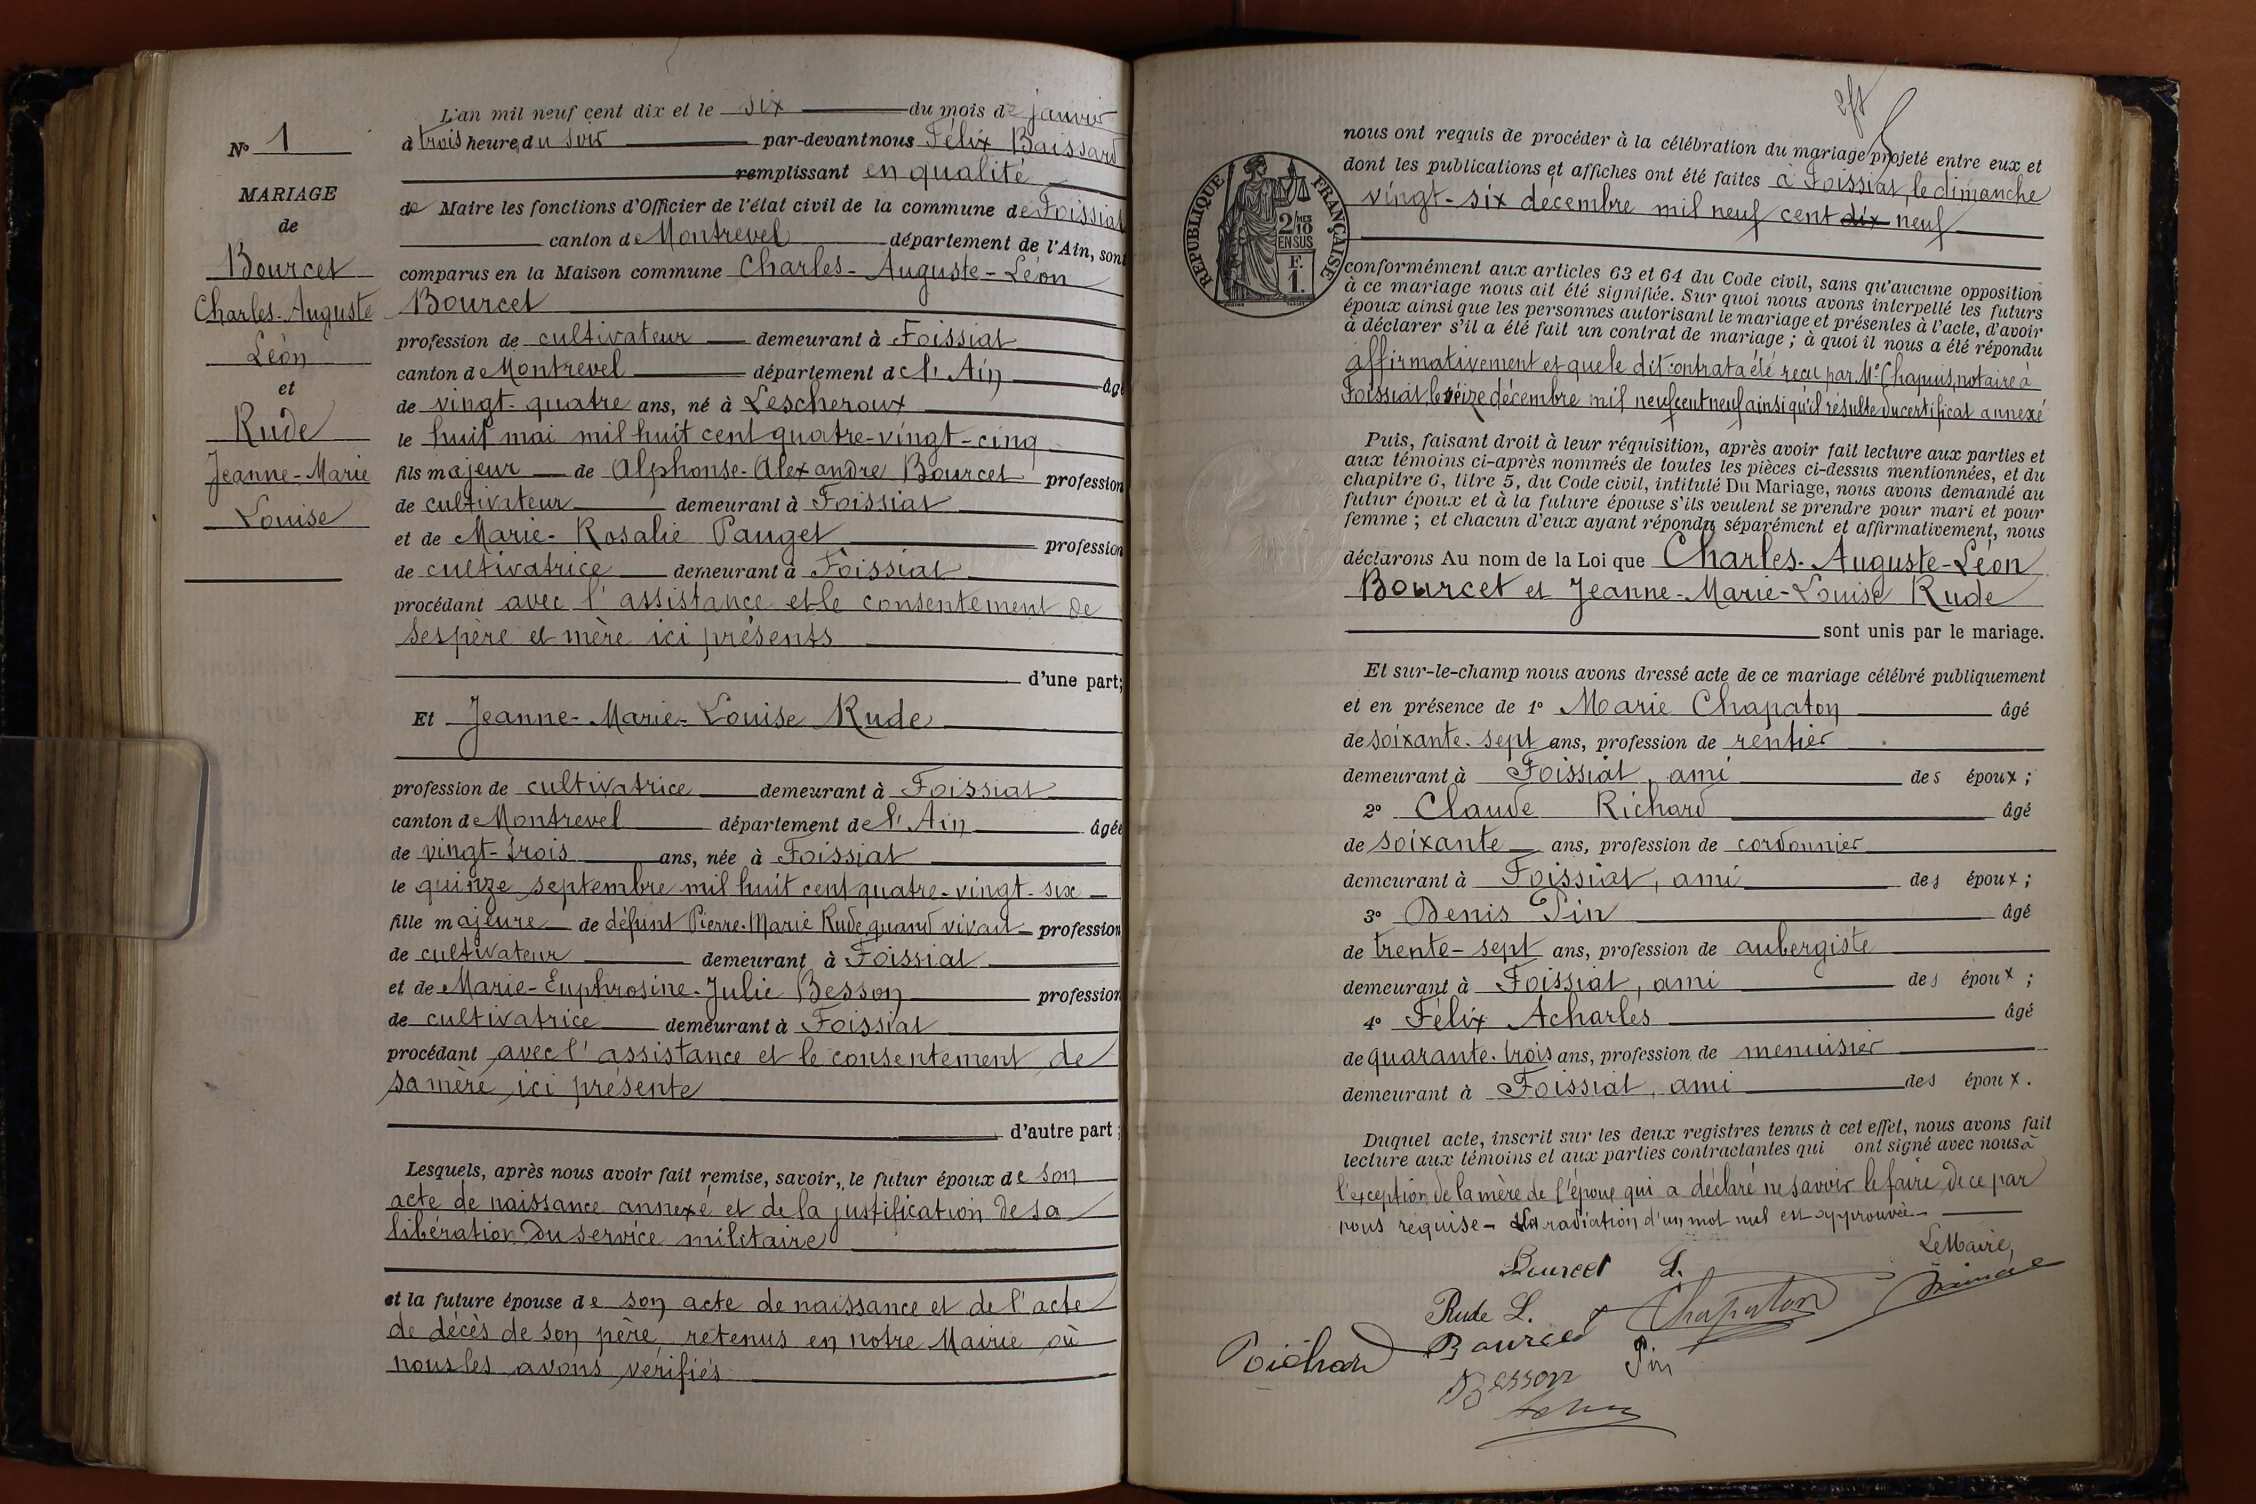 N° 1
MARIAGE
de
Bourcet
Charles-Auguste
Léon
et
Rude
Jeanne-Marie
Louise
L'an mil neuf cent dix et le six du mois de janvier
à trois heure du soir par-devant nous Félix Baissard
remplissant en qualité
de Maire les fonctions d'Officier de l'état civil de la commune de Foissiat
canton de Montrevel département de l'Ain, sont
comparus en la Maison commune Charles-Auguste-Léon
Bourcet
profession de cultivateur demeurant à Foissiat
canton de Montrevel département de l'Ain âgé
de vingt-quatre ans, né à Lescheroux
le huit mai mil huit cent quatre-vingt-cinq
fils majeur de Alphonse-Alexandre Bourcet profession
de cultivateur demeurant à Foissiat
et de Marie-Rosalie Pauget profession
de cultivatrice demeurant à Foissiat
procédant avec l'assistance et le consentement de
ses père et mère ici présents
d'une part;
Et Jeanne-Marie-Louise Rude
profession de cultivatrice demeurant à Foissiat
canton de Montrevel département de l'Ain âgée
de vingt-trois ans, née à Foissiat
le quinze septembre mil huit cent quatre-vingt-six
fille majeure de défunt Pierre-Marie Rude, quand vivait profession
de cultivateur demeurant à Foissiat
et de Marie-Euphrosine-Julie Besson profession
de cultivatrice demeurant à Foissiat
procédant avec l'assistance et le consentement de
sa mère ici présente
d'autre part;
Lesquels, après nous avoir fait remise, savoir, le futur époux de son
acte de naissance annexé et de la justification de sa
libération du service militaire
et la future épouse de son acte de naissance et de l'acte
de décès de son père, retenus en notre Mairie où
nous les avons vérifiés
RÉPUBLIQUE FRANÇAISE
2/10
EN SUS
F.
1.
nous ont requis de procéder à la célébration du mariage projeté entre eux et
dont les publications et affiches ont été faites à Foissiat, le dimanche
vingt-six décembre mil neuf cent dix neuf
conformément aux articles 63 et 64 du Code civil, sans qu'aucune opposition
à ce mariage nous ait été signifiée. Sur quoi nous avons interpellé les futurs
époux ainsi que les personnes autorisant le mariage et présentes à l'acte, d'avoir
à déclarer s'il a été fait un contrat de mariage; à quoi il nous a été répondu
affirmativement et que le dit contrat a été reçu par Me Chapuis, notaire à
Foissiat, le seize décembre mil neuf cent neuf ainsi qu'il résulte du certificat annexé
Puis, faisant droit à leur réquisition, après avoir fait lecture aux parties et
aux témoins ci-après nommés de toutes les pièces ci-dessus mentionnées, et du
chapitre 6, titre 5, du Code civil, intitulé Du Mariage, nous avons demandé au
futur époux et à la future épouse s'ils veulent se prendre pour mari et pour
femme; et chacun d'eux ayant répondu séparément et affirmativement, nous
déclarons Au nom de la Loi que Charles-Auguste-Léon
Bourcet et Jeanne-Marie-Louise Rude
sont unis par le mariage.
Et sur-le-champ nous avons dressé acte de ce mariage célébré publiquement
et en présence de 1° Marie Chapaton âgé
de soixante-sept ans, profession de rentier
demeurant à Foissiat, ami des époux;
2° Claude Richard âgé
de soixante ans, profession de cordonnier
demeurant à Foissiat, ami des époux;
3° Denis Pin âgé
de trente-sept ans, profession de aubergiste
demeurant à Foissiat, ami des époux;
4° Félix Acharles âgé
de quarante-trois ans, profession de menuisier
demeurant à Foissiat, ami des époux.
Duquel acte, inscrit sur les deux registres tenus à cet effet, nous avons fait
lecture aux témoins et aux parties contractantes qui ont signé avec nous à
l'exception de la mère de l'époux qui a déclaré ne savoir le faire, de ce par
nous requise - La radiation d'un mot nul est approuvée
Le Maire,
Bourcet L.
Rude L. Chapaton
Bourcet Pin
Besson